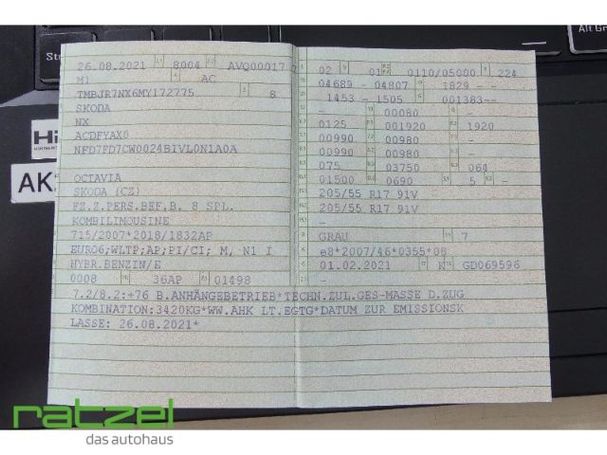 26.08.2021 8004 AVQ00017
M1 AC
TMBJR7NX6MY172775 8
SKODA
NX
ACDFYAX0
NFD7FD7CW0024BIVL0N1A0A
OCTAVIA
SKODA (CZ)
FZ.Z.PERS.BEF.B. 8 SPL.
KOMBILIMOUSINE
715/2007*2018/1832AP
EURO6;WLTP;AP;PI/CI; M, N1 I
HYBR.BENZIN/E
0008 36AP 01498
02 01 0110/05000 224
04689 - 04807 1829 - -
1453 - 1505 001383--
- 00080 -
0125 001920 1920
00990 00980 -
00990 00980 -
075 03750 064
01500 0690 5 -
205/55 R17 91V
205/55 R17 91V
-
GRAU 7
e8*2007/46*0355*08
01.02.2021 K GD069596
-
7.2/8.2:+76 B.ANHÄNGEBETRIEB*TECHN.ZUL.GES-MASSE D.ZUG
KOMBINATION:3420KG*WW.AHK LT.EGTG*DATUM ZUR EMISSIONSK
LASSE: 26.08.2021*
Hi
AK
Alt Gr
ratzel
das autohaus